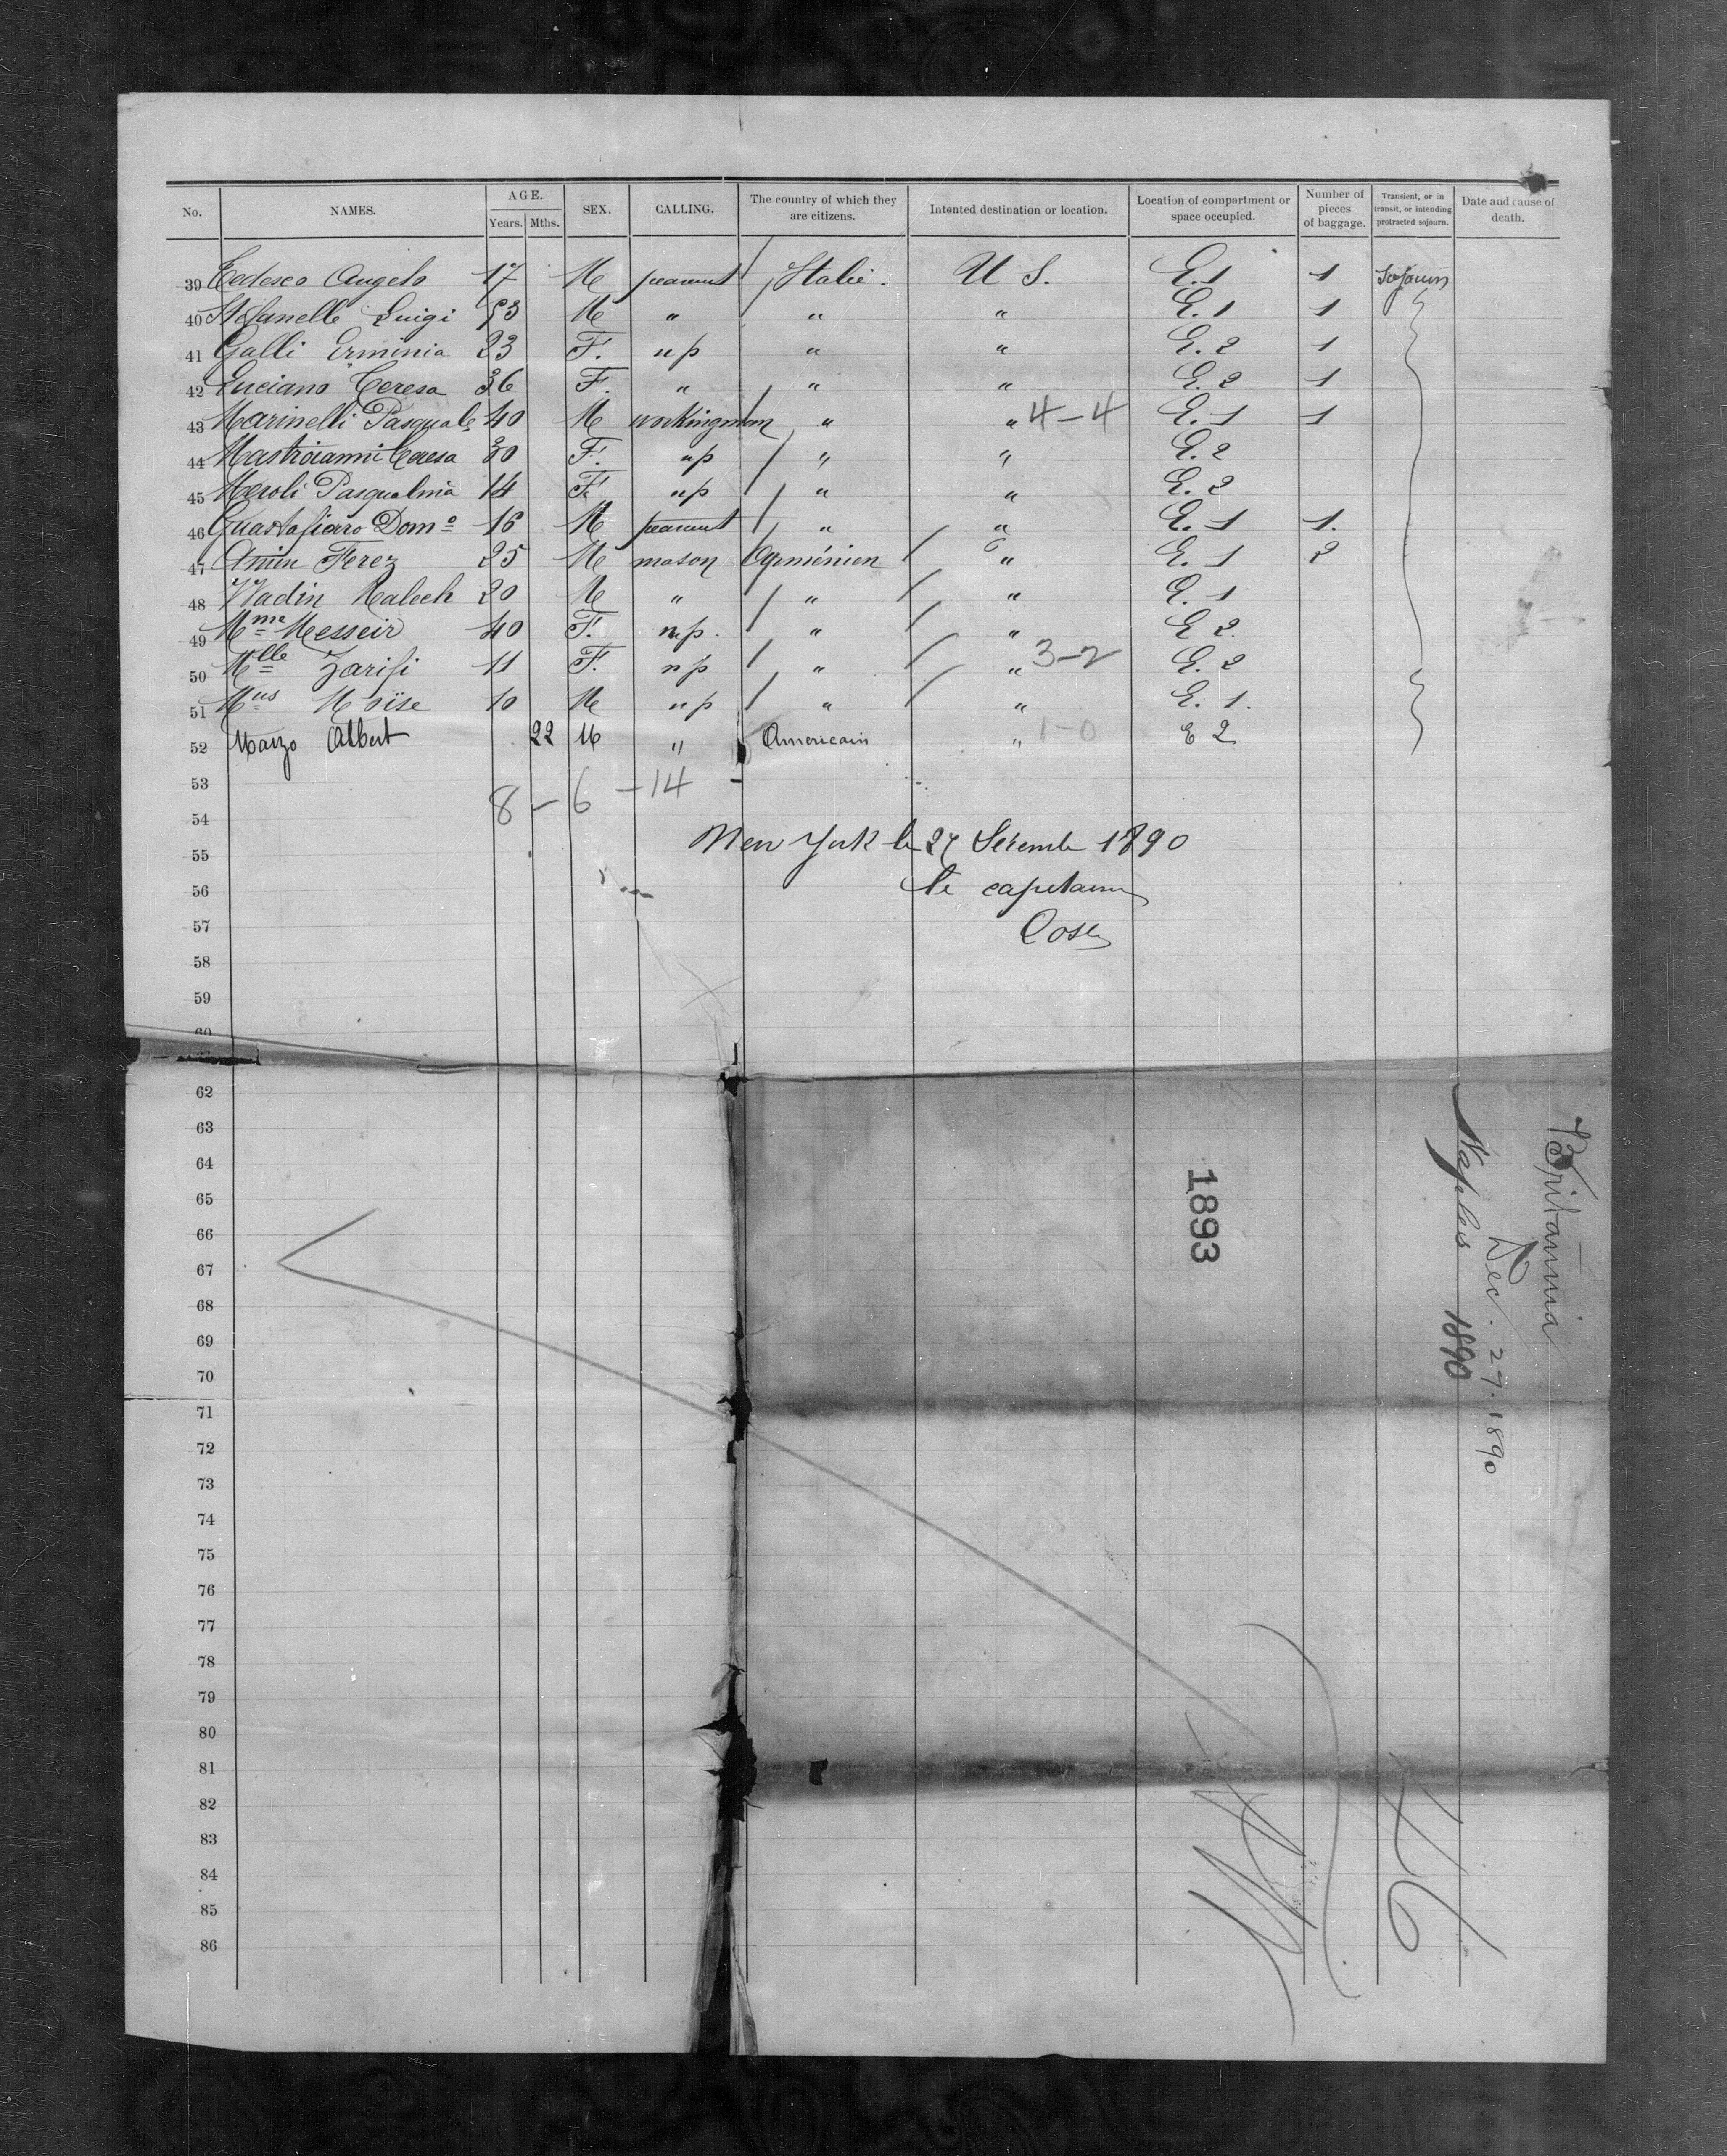 No. NAMES. AGE. Years. Mths. SEX. CALLING. The country of which they are citizens. Intented destination or location. Location of compartment or space occupied. Number of pieces of baggage. Transient, or in transit, or intending protracted sojourn. Date and cause of death.
39 Tedesco Angelo 17 M peasant Italie. U S. E. 1 1 Sojourn
40 Stefanelle Luigi 53 M " " " E. 1 1
41 Galli Erminia 23 F. n p " " E. 2 1
42 Luciano Teresa 36 F. " " " E. 2 1
43 Marinelli Pasquale 40 M workingman " " 4-4 E. 1 1
44 Mastroianni Teresa 30 F. n p " " E. 2
45 Meroli Pasqualina 14 F. n p " " E. 2
46 Guastafierro Domo 16 M peasant " " E. 1 1.
47 Amin Ferez 25 M mason Arménien " E. 1 2
48 Wadin Malech 20 M " " " E. 1
49 Mme Messeir 40 F. n p. " " E 2.
50 Mlle Zarifi 11 F. n p " " 3-2 E. 2
51 Mus Moïse 10 M n p " " E. 1.
52 Marzo Albert 22 M " Americain " 1-0 E 2
53
8 - 6 - 14
54
New York le 27 Décembre 1890
55
56
le capitaine
57
58
59
60
62
63
64
65
66
67
68
69
70
71
72
73
74
75
76
77
78
79
80
81
82
83
84
85
86
Britannia
Dec. 27. 1890
Naples 1890
1893